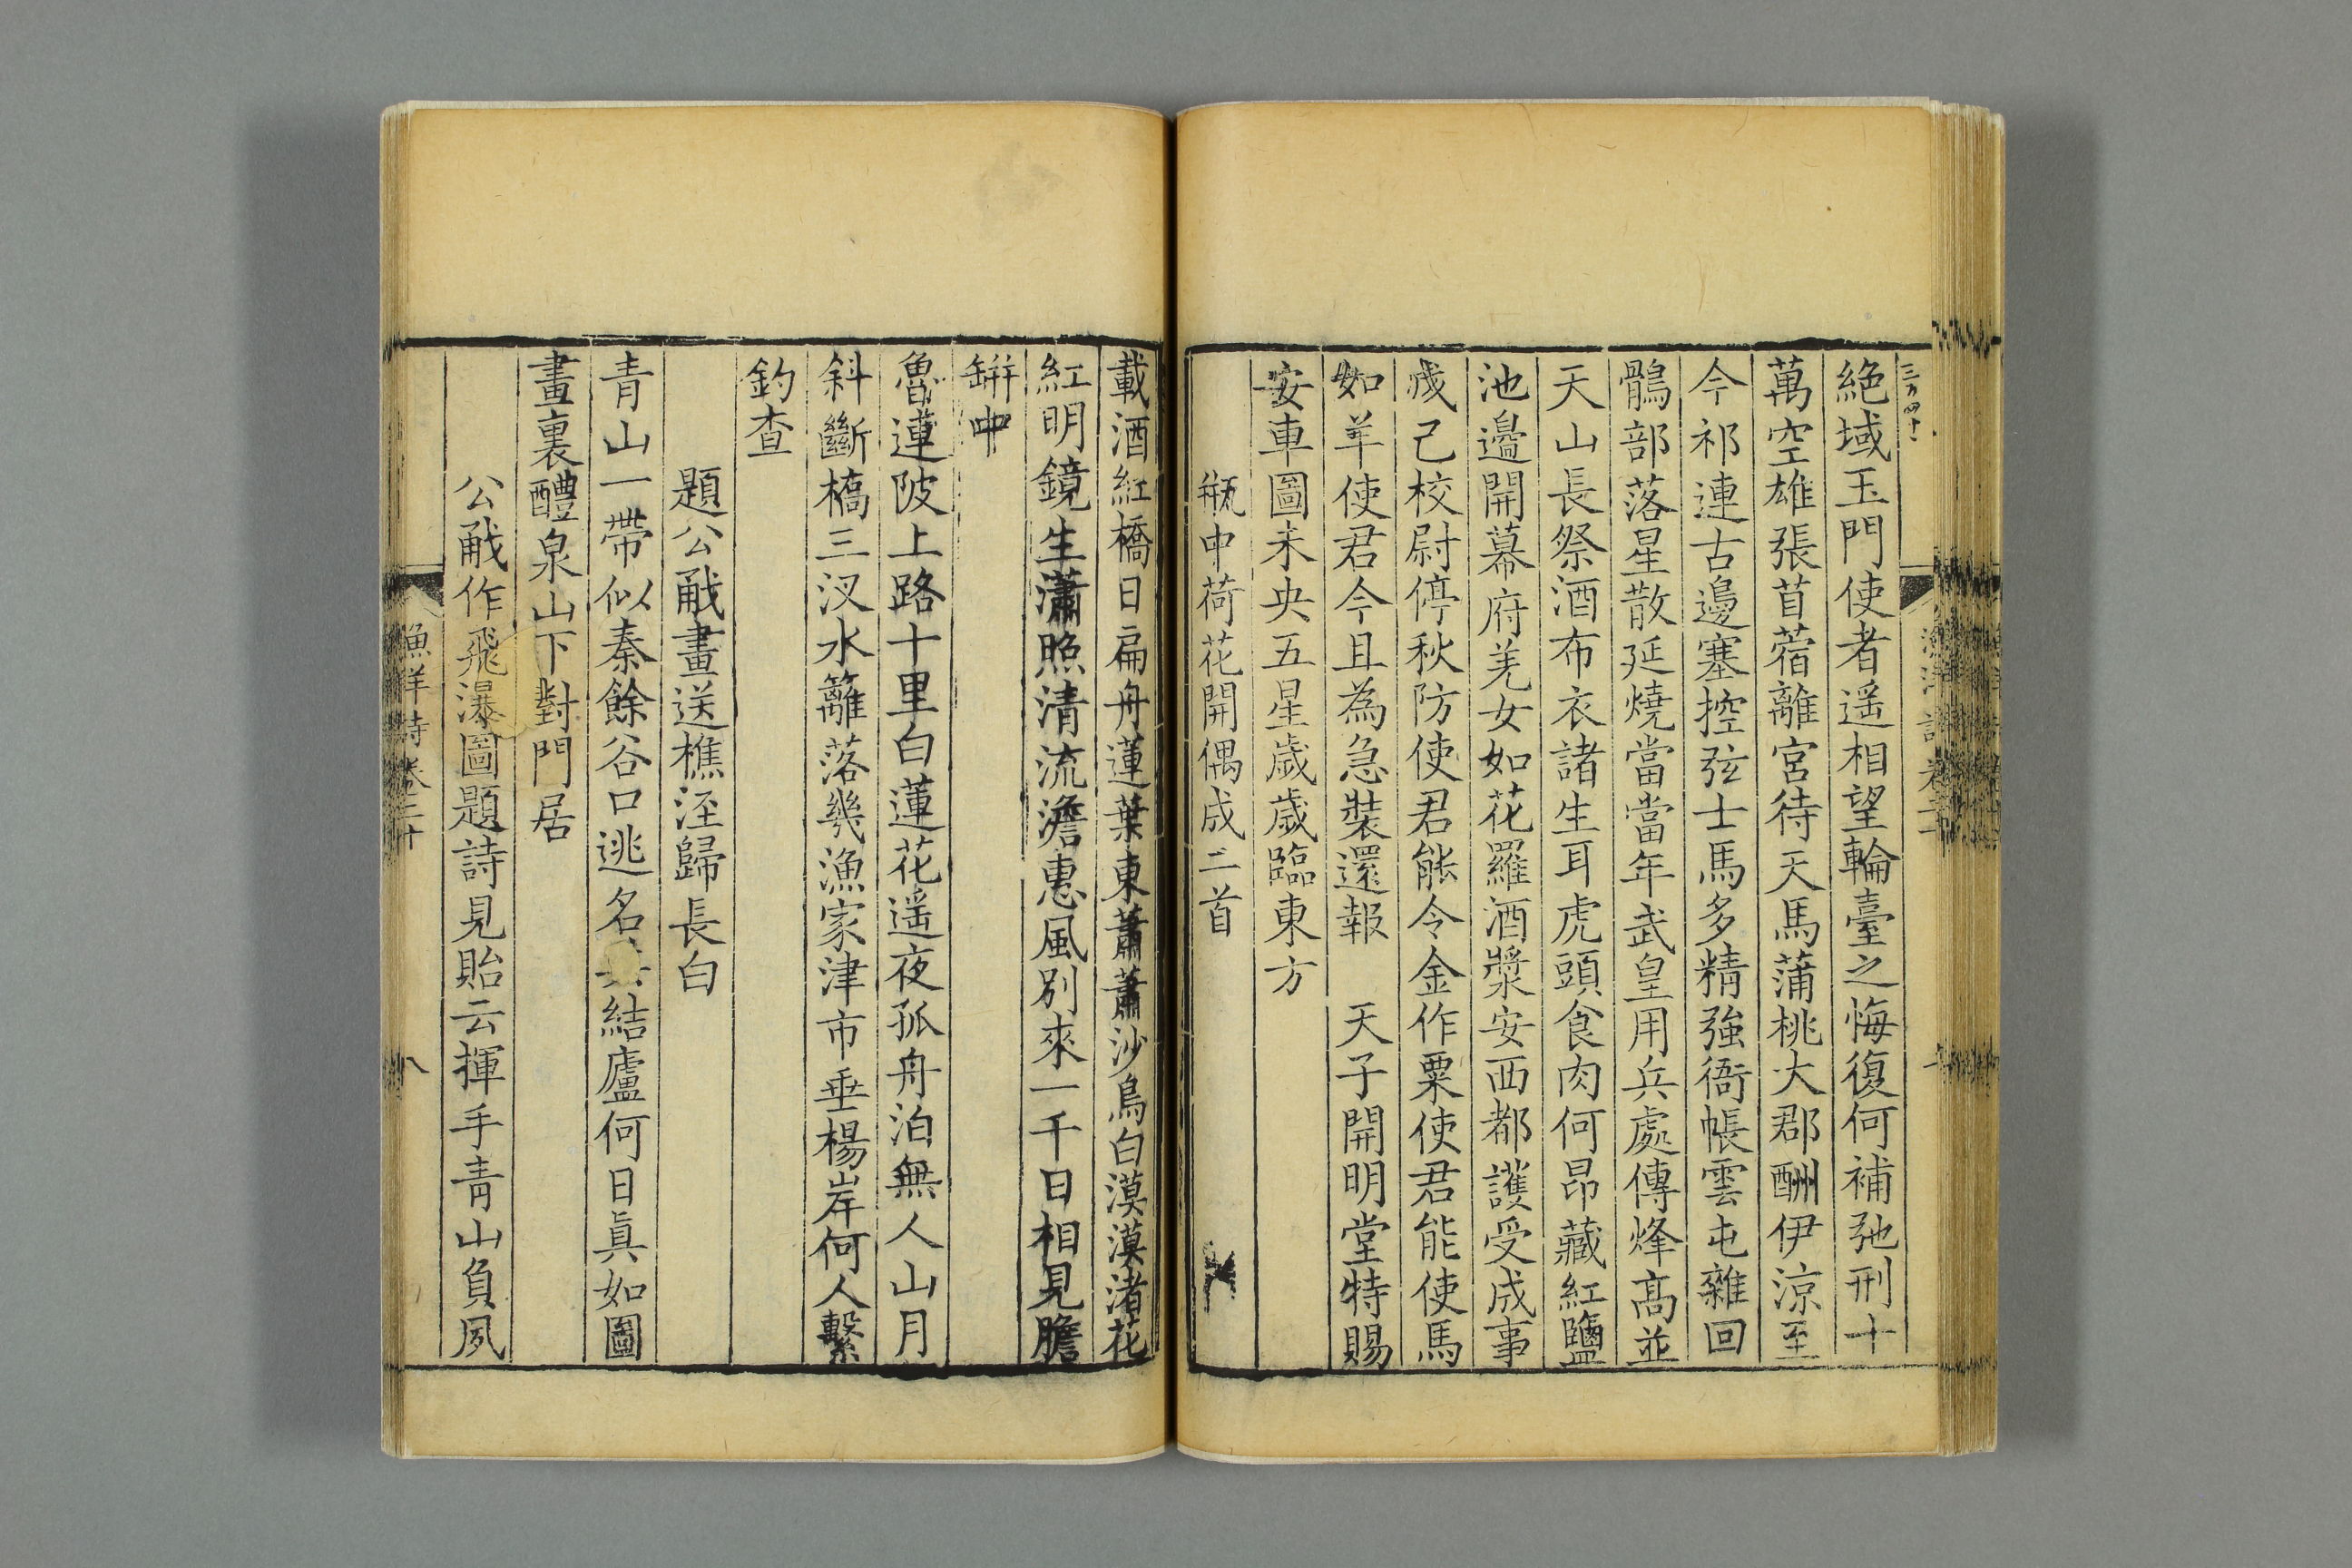 絶域玉門使者遥相望輪臺之悔復何補弛刑十
萬空雄張苜蓿離宮待天馬蒲桃大郡酬伊涼至
今祁連古邊塞控弦士馬多精強衙帳雲屯雜回
鶻部落星散延燒當當年武皇用兵處傳烽髙並
天山長祭酒布衣諸生耳虎頭食肉何昂藏紅鹽
池邊開幕府羌女如花羅酒漿安西都護受成事
戍己校尉停秋防使君能令金作粟使君能使馬
如羊使君今且為急裝還報　天子開明堂特賜
安車圖未央五星歲歲臨東方
瓶中荷花開偶成二首
載酒紅橋日扁舟蓮葉東蕭蕭沙鳥白漠漠渚花
紅明鏡生瀟照清流澹惠風別來一千日相見膽
缾中
魯連陂上路十里白蓮花遥夜孤舟泊無人山月
斜斷橋三汊水籬落幾漁家津市垂楊岸何人繫
釣查
題公戭畫送樵涇歸長白
青山一帶似秦餘谷口逃名結廬何日眞如圖
畫裏醴泉山下對門居
公戭作飛瀑圖題詩見貽云揮手青山負夙
漁洋詩卷二十
八